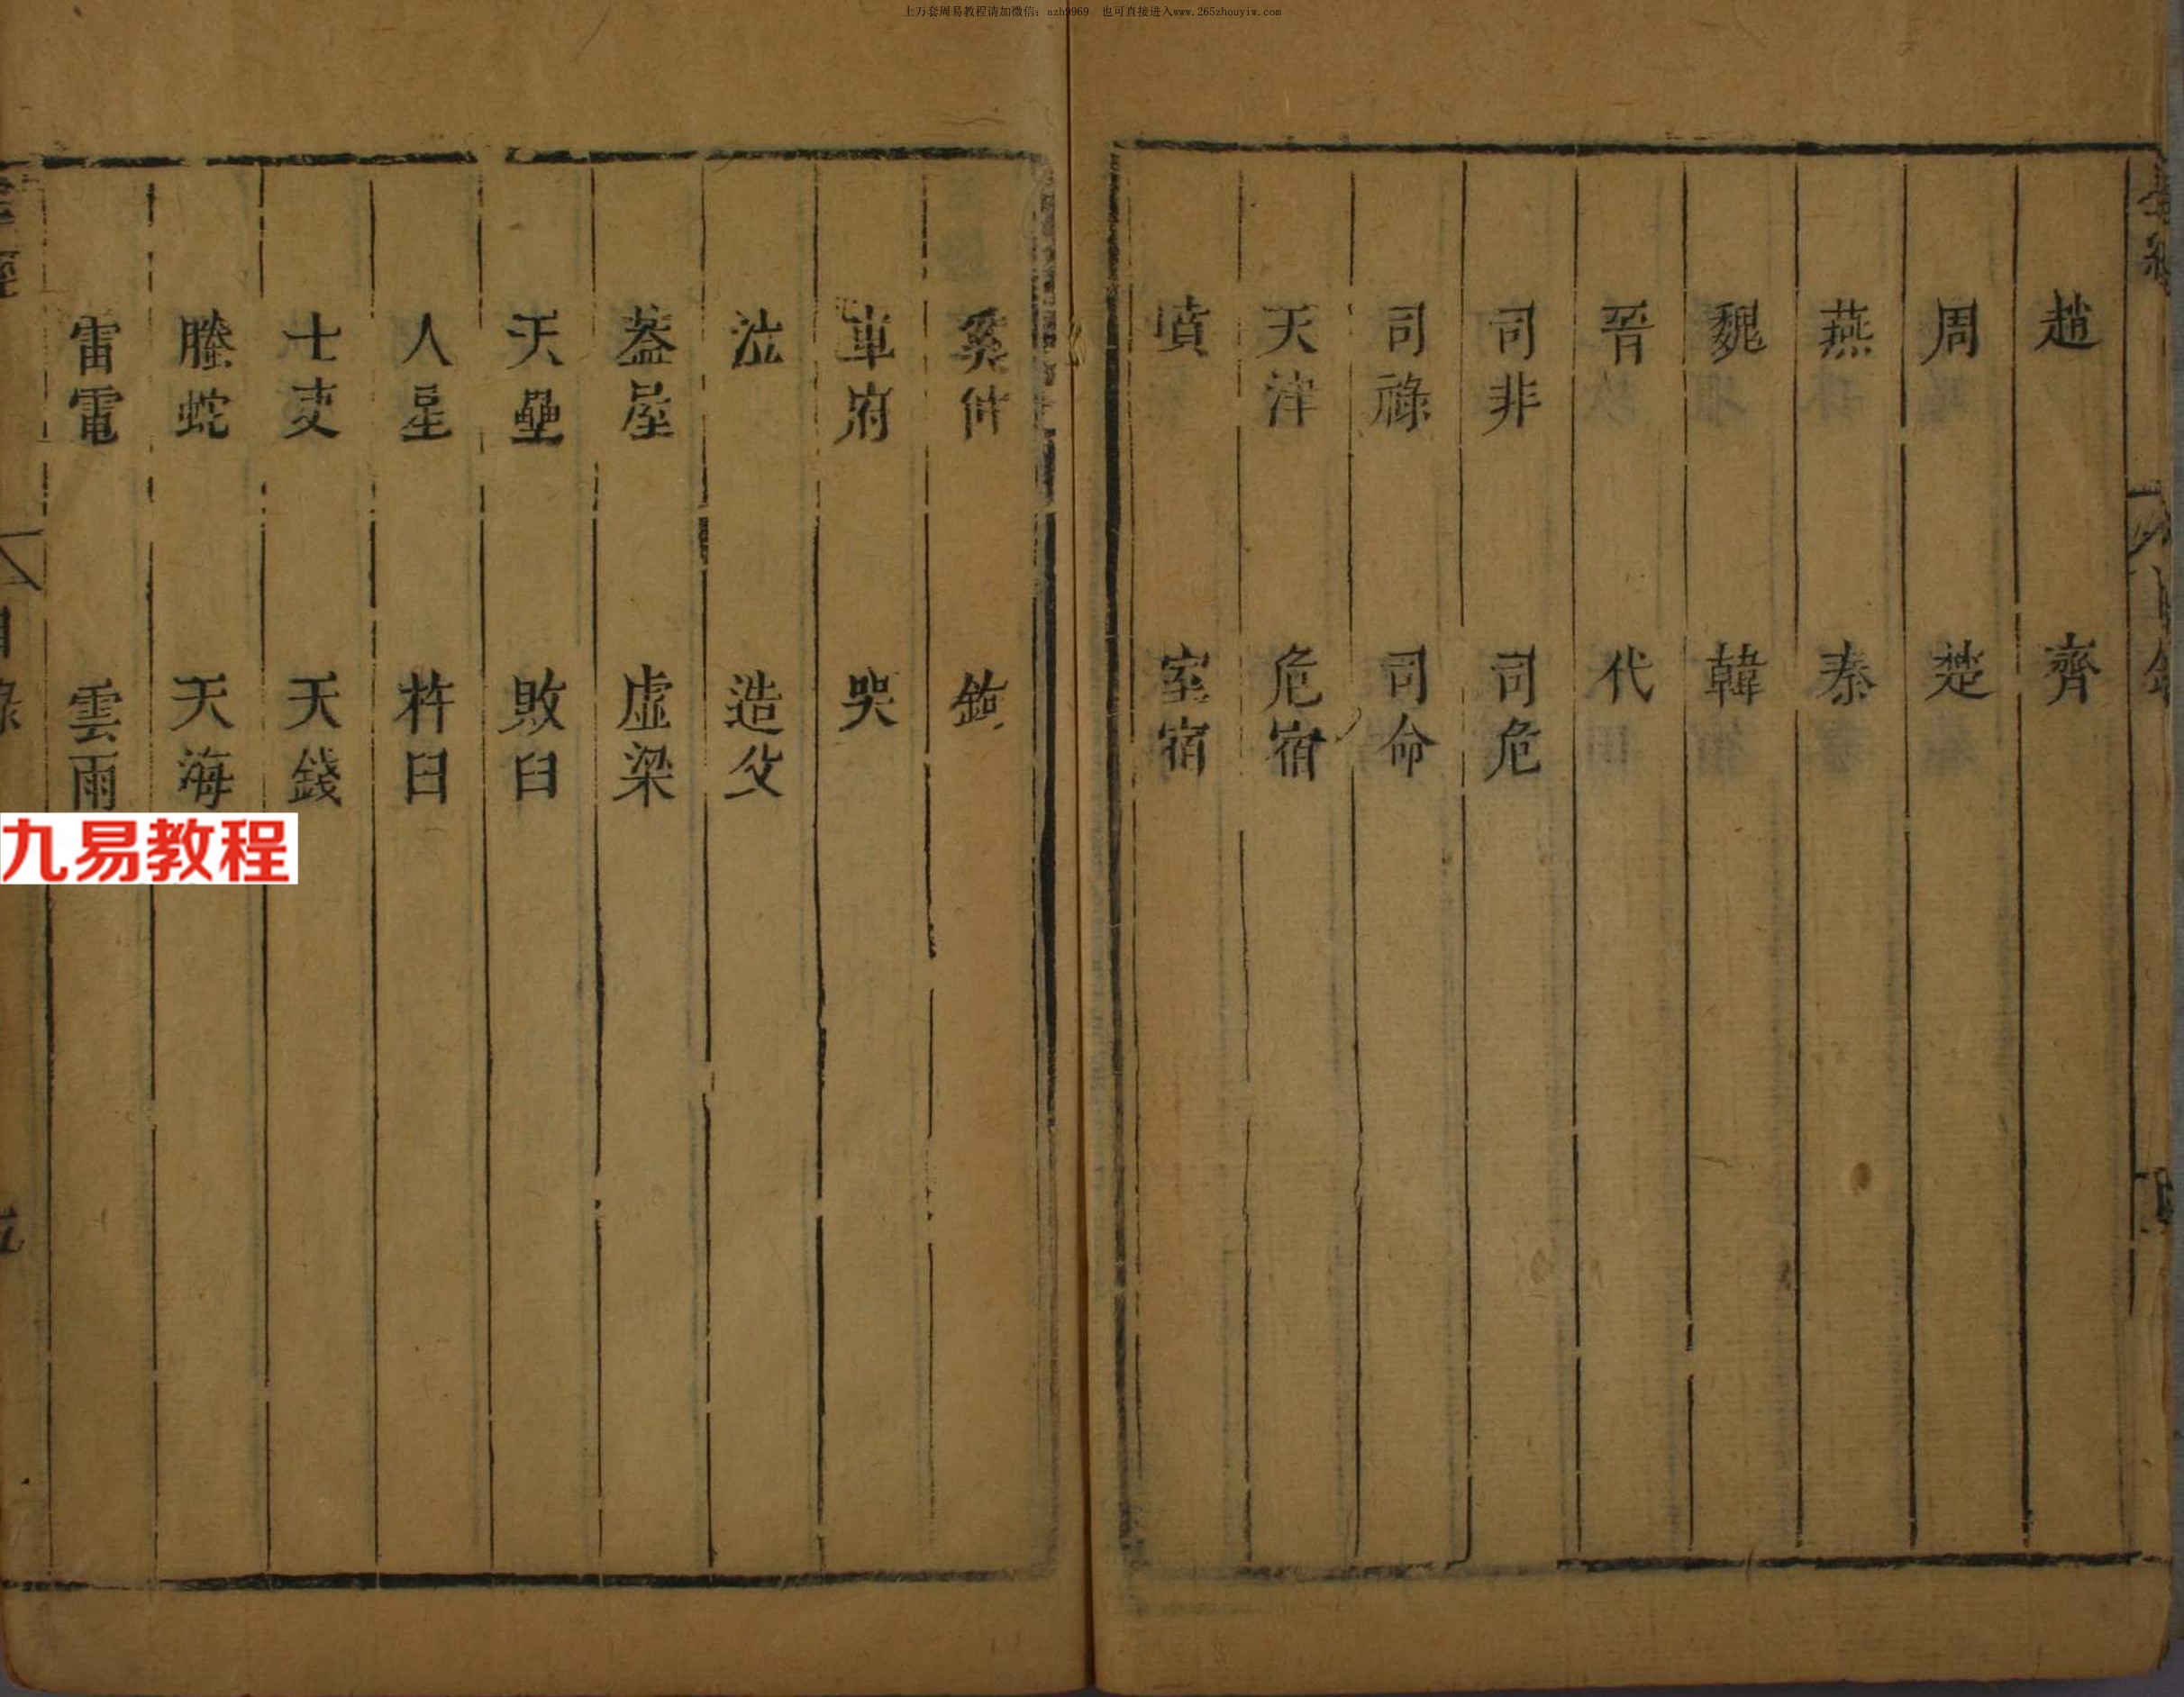 上万套周易教程请加微信：szh9969　也可直接进入www.265zhouyiw.com
趙　齊
周　楚
燕　秦
魏　韓
晉　代
司非　司危
司祿　司命
天津　危宿
墳　室宿
奚仲　鉤
車府　哭
泣　造父
蓋屋　虛梁
天壘　敗臼
人星　杵臼
土吏　天錢
螣蛇　天海
雷電　雲雨
目錄
五
九易教程